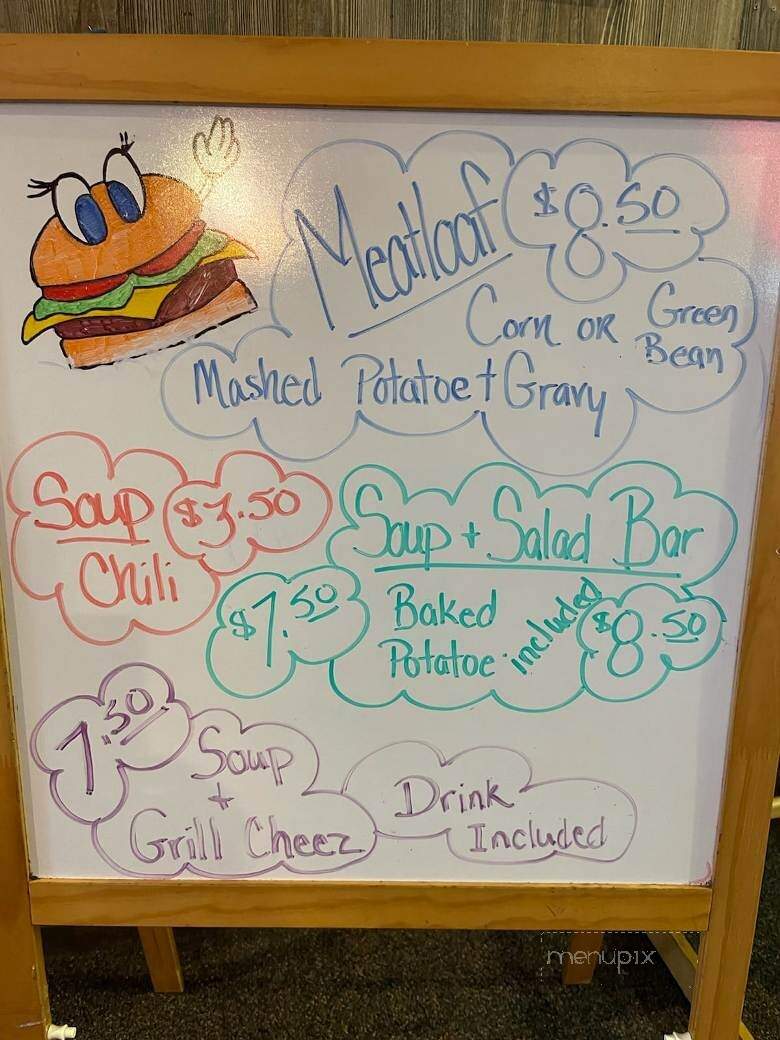 Meatloaf $8.50
Corn or Green
Bean
Mashed Potatoe + Gravy
Soup $3.50
Chili
Soup + Salad Bar
$7.50
Baked
Potatoe included $8.50
7.50
Soup
+
Grill Cheez
Drink
Included
menupix